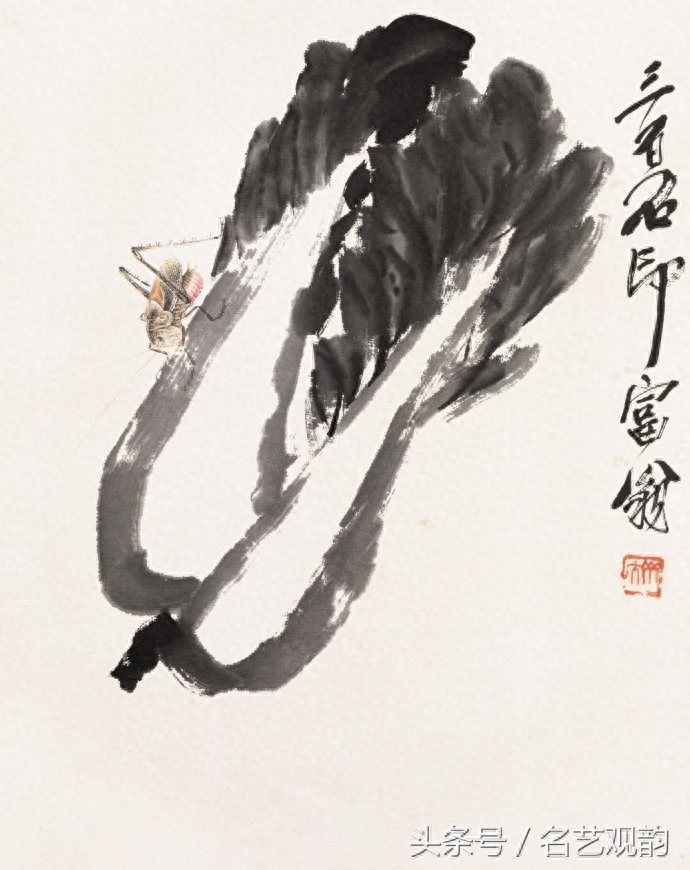 三百石印富翁
头条号 / 名艺观韵